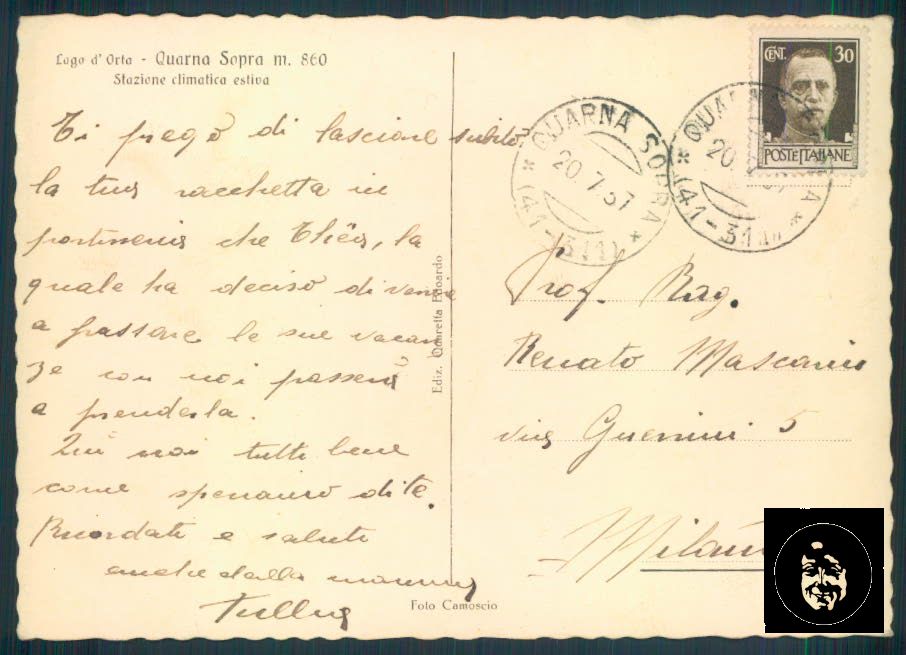 Lago d'Orta - Quarna Sopra m. 860
Stazione climatica estiva
Ti prego di lasciare subito
la tua racchetta in
portineria che Thêa, la
quale ha deciso di venire
a passare le sue vacan
ze con noi passerà
a prenderla.
Qui noi tutti bene
come speriamo di te.
Ricordati e saluti
anche dalla mamma
Tullia
Ediz. Quaretta Edoardo
Foto Camoscio
CENT. 30
POSTE ITALIANE
* QUARNA SOPRA *
20.7.37
(41-311)
* QUAR A *
20
(41-31
Prof. Rag.
Renato Mascarini
via Guerrini 5
Milano